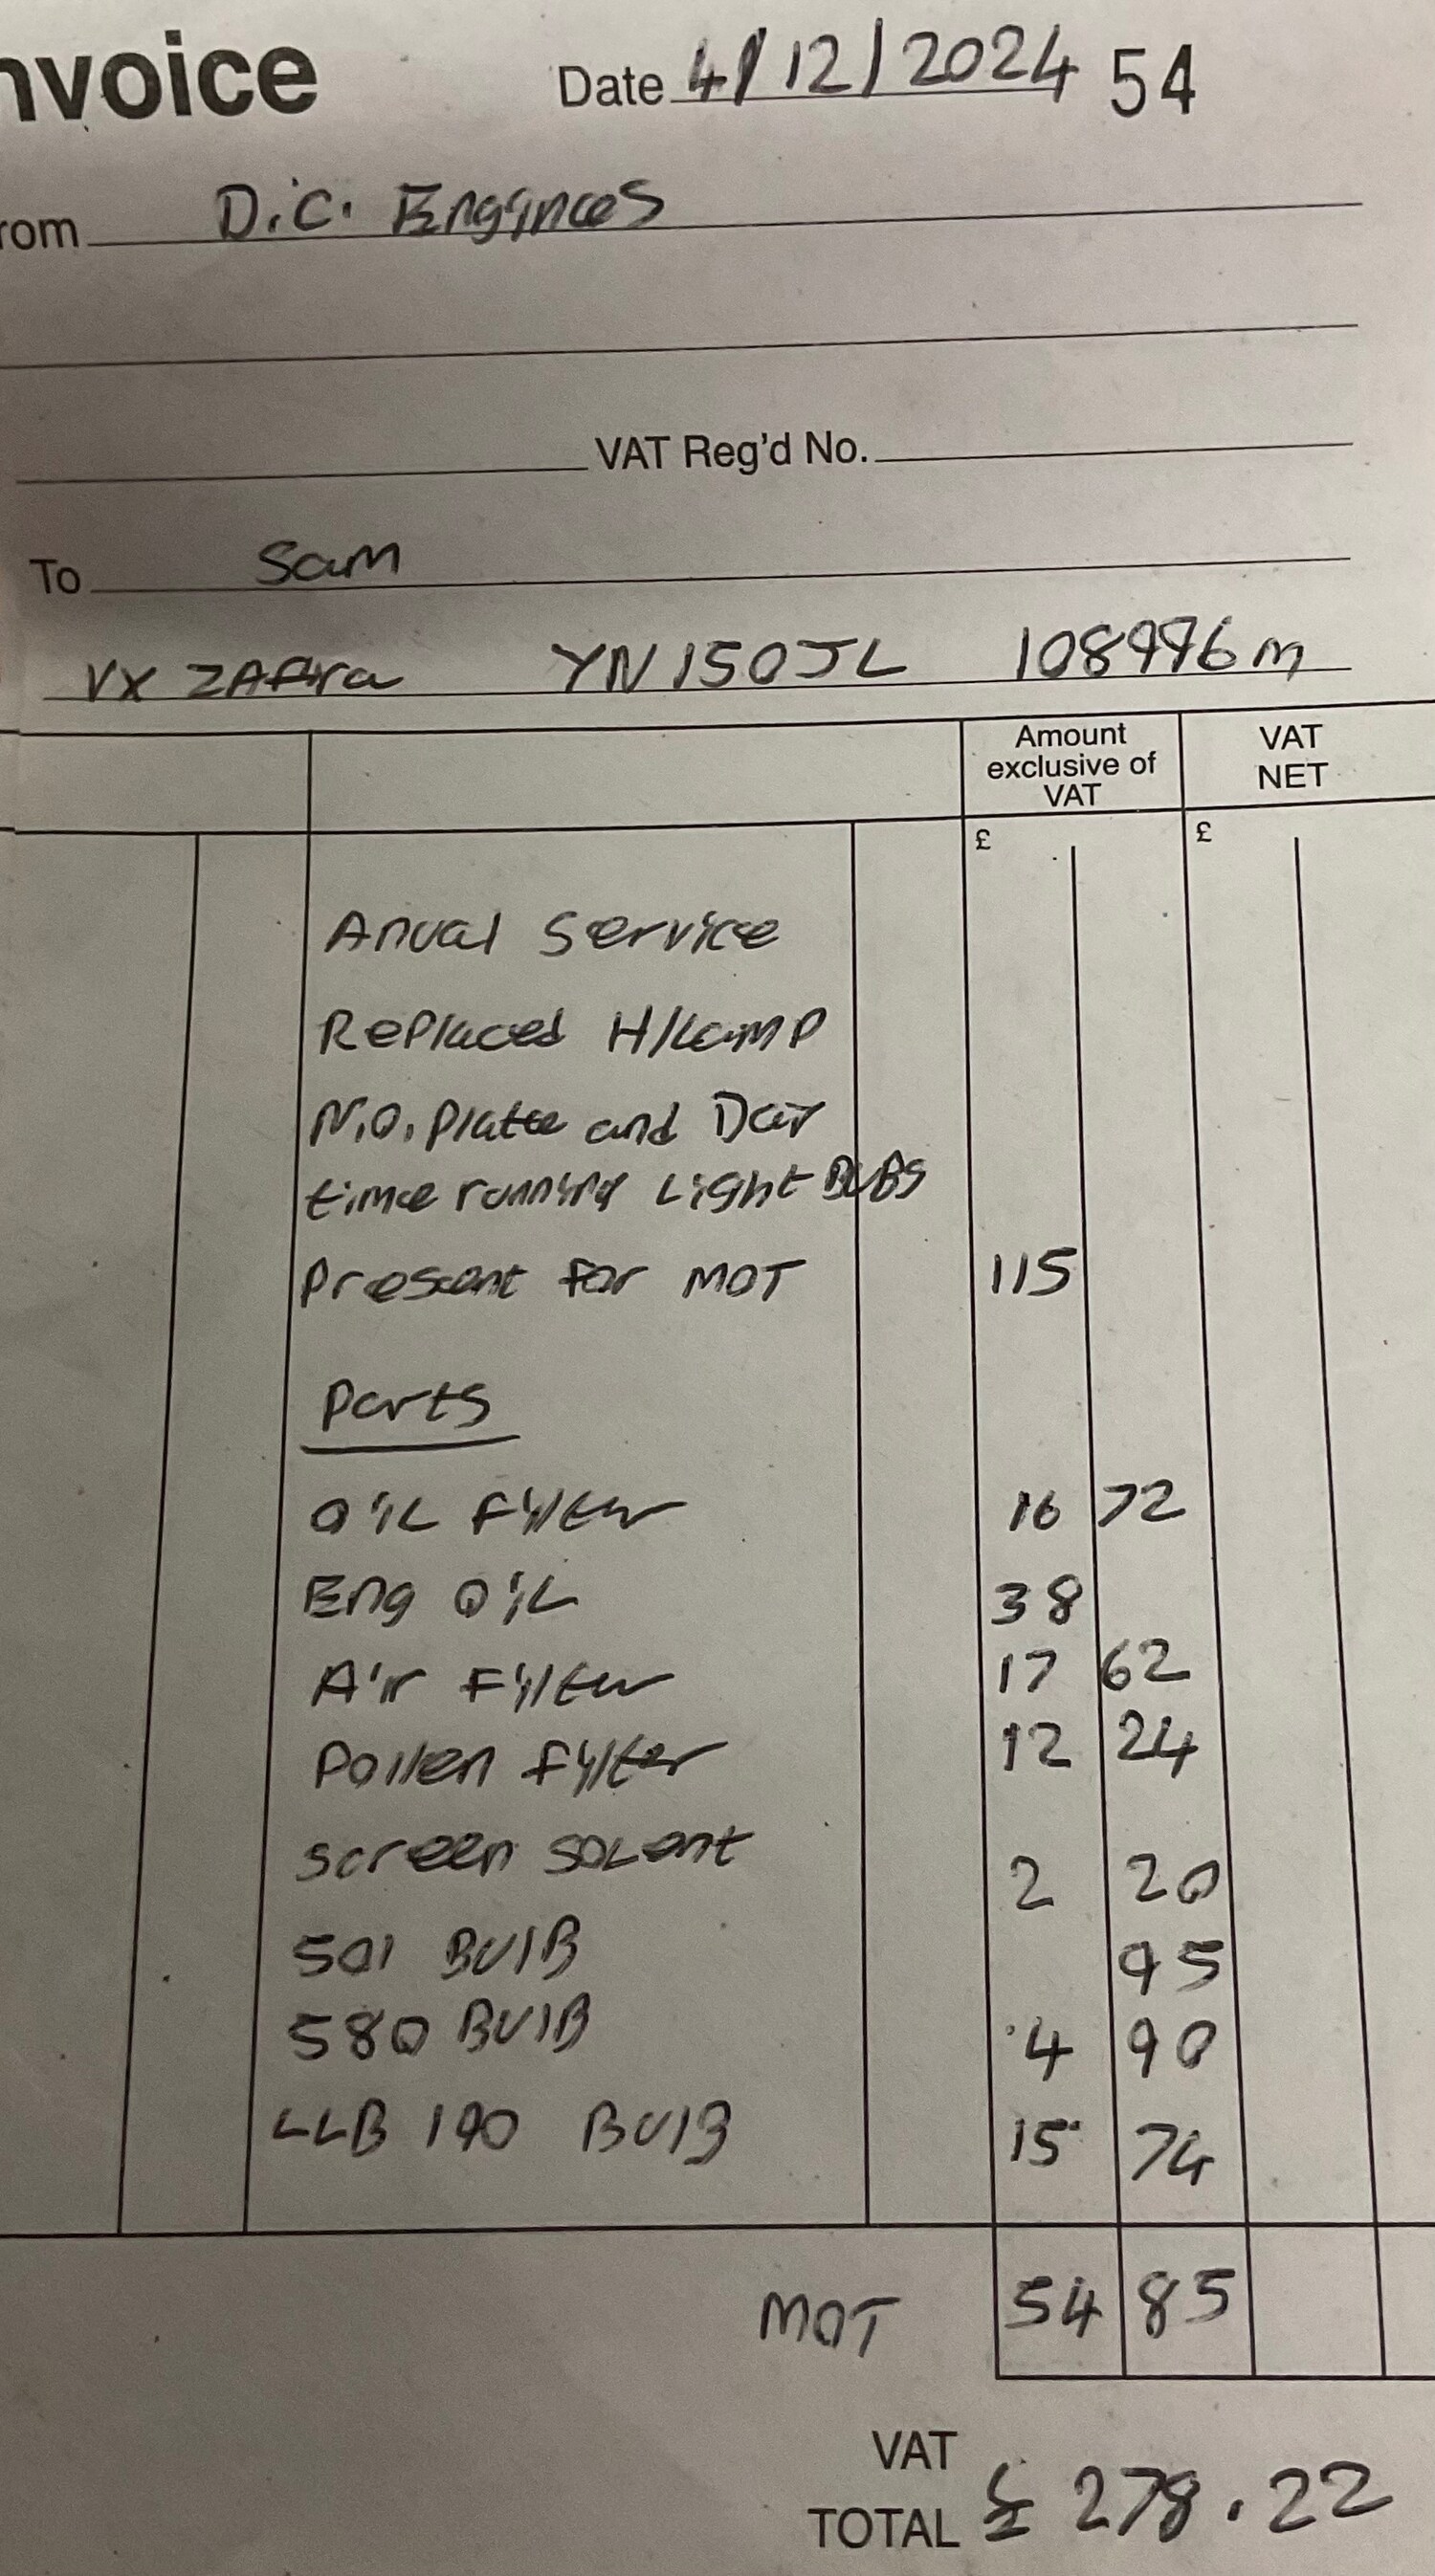 nvoice Date 4/12/2024 54
rom D.C. Engines
VAT Reg'd No.
To Sam
VX ZAfira YN15OJL 108996m
Amount exclusive of VAT VAT NET
£ £
Anual Service
Replaced H/Lamp
N.O. Platte and Day
time running Light BUBS
Present for MOT 115
Parts
OiL Filter 16 72
Eng OiL 38
Air Filter 17 62
Pollen filter 12 24
Screen SOLvent 2 20
501 BUlB 95
580 BUlB 4 90
LLB 190 BUlB 15 74
MOT 54 85
VAT
TOTAL £ 278.22